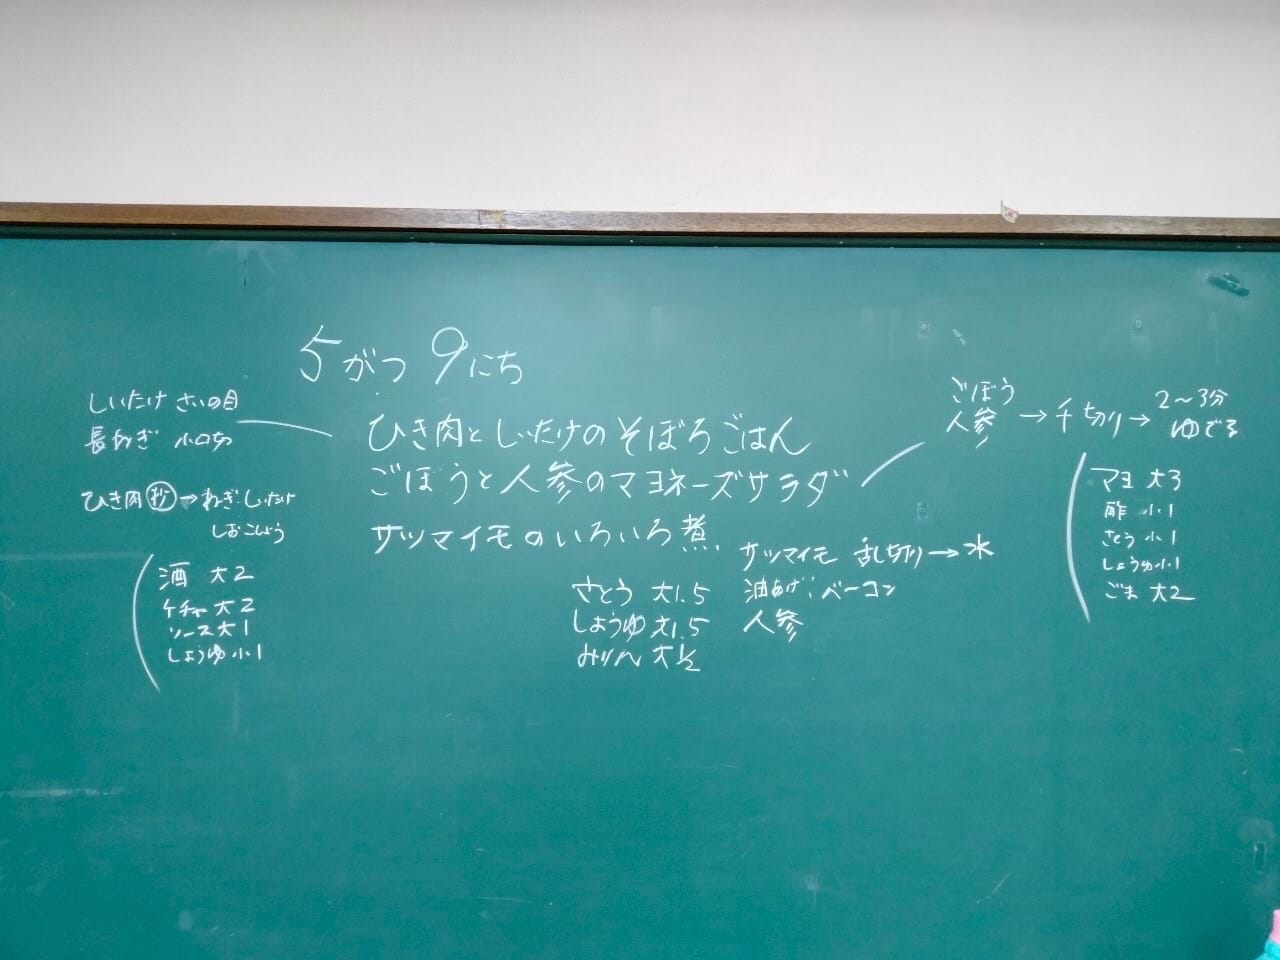 5がつ 9にち
しいたけ さいの目
長ねぎ 小口切
ひき肉 炒→ねぎ・しいたけ
しおこしょう
酒 大2
ケチャ大2
ソース大1
しょうゆ小1
ひき肉としいたけのそぼろごはん
ごぼうと人参のマヨネーズサラダ
サツマイモのいろいろ煮
さとう 大1.5
しょうゆ 大1.5
みりん 大1/2
サツマイモ 乱切り→水
油あげ:ベーコン
人参
ごぼう
人参 →千切り→ 2~3分
ゆでる
マヨ 大3
酢 小1
さとう 小1
しょうゆ小1
ごま 大2